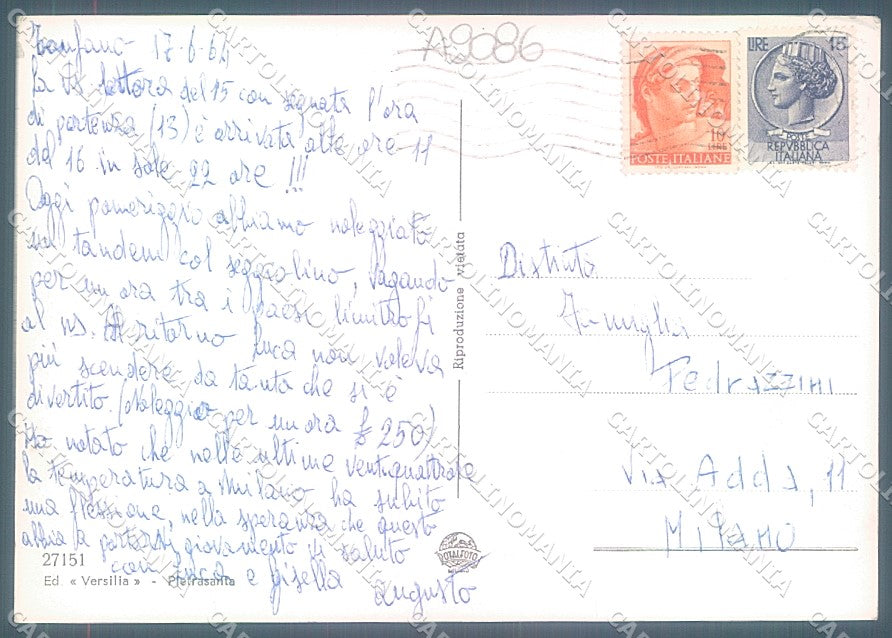 Tonfano 17-6-64
La vs. lettera del 15 con segnata l'ora
di partenza (13) è arrivata alle ore 11
del 16 in sole 22 ore !!!
Oggi pomeriggio abbiamo noleggiato
un tandem col seggiolino, vagando
per un'ora tra i paesi limitrofi
al ns. Al ritorno Luca non voleva
più scendere da tanto che si è
divertito. (Noleggio per un ora £ 250)
Ho notato che nelle ultime ventiquattrore
la temperatura a Milano ha subito
una flessione, nella speranza che questo
abbia a portarvi giovamento vi saluto
con Luca e Gisella
Augusto
27151
Ed. « Versilia » - Pietrasanta
Riproduzione vietata
ROTALFOTO
A9086
10
LIRE
POSTE ITALIANE
LIRE 15
POSTE
REPVBBLICA
ITALIANA
Distinta
Famiglia
Pedrazzini
Via Adda, 11
Milano
CARTOLINOMANIA